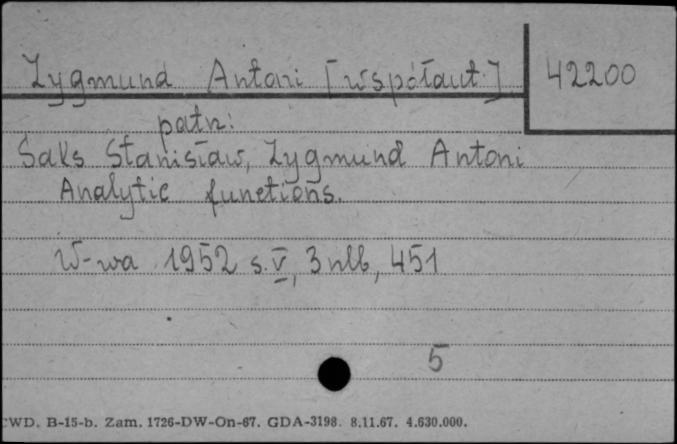 Zygmund Antoni [współaut.] 42200
patrz:
Saks Stanisław, Zygmund Antoni
Analytic functions.
W-wa 1952 s. V, 3 nlb, 451
5
CWD. B-15-b. Zam. 1726-DW-On-67. GDA-3198. 8.11.67. 4.630.000.